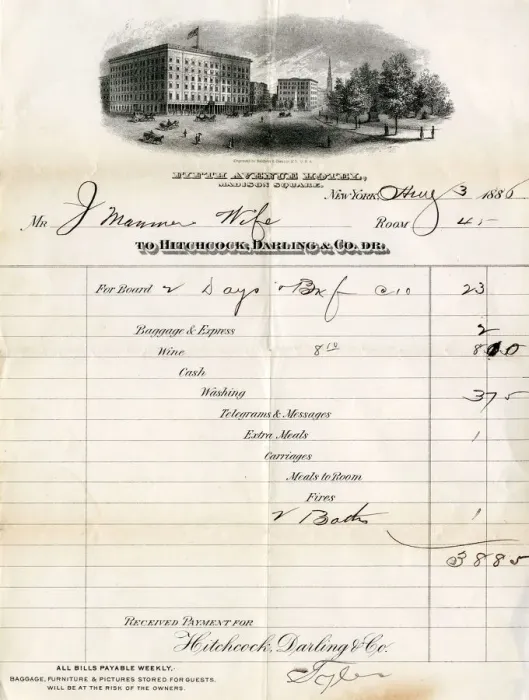 FIFTH AVENUE HOTEL,
MADISON SQUARE.
NEW YORK, Aug 3 1886
MR J Manner Wife ROOM 45
TO HITCHCOCK, DARLING & CO. DR.
For Board 2 Days & Bkf @10 23
Baggage & Express 2
Wine 8 10 8 10
Cash
Washing 3 75
Telegrams & Messages
Extra Meals 1
Carriages
Meals to Room
Fires
2 Baths 1
38 85
RECEIVED PAYMENT FOR
Hitchcock, Darling & Co.
Tyler
ALL BILLS PAYABLE WEEKLY.
BAGGAGE, FURNITURE & PICTURES STORED FOR GUESTS,
WILL BE AT THE RISK OF THE OWNERS.